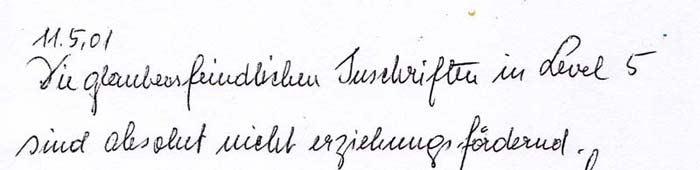 11.5,01
Die glaubensfeindlichen Inschriften in Level 5
sind absolut nicht erziehungsfördernd.